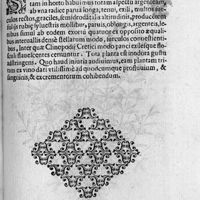 tam in horto habui mus totam aspectu argenteam,
ab vna radice parua longa, tenui, exili, multos sur-
culos rectos, graciles, semicubitalis altitudinis, producentem
rubiq; syluestris mollioribus, paruis, oblongis, argenteis, le-
uibus simul ab eodem exortu quatuor ex opposito æquali-
bus interuallis densè stellarum modo, surculos conuestienti-
bus, inter quæ Clinopodij Cretici modo pauci exilesque flo-
sculi flauescentes emanantur. Tota planta est insidora gustu
astringens. Quo haud iniuria audiuimus, eam plantam tritam
ex vino dari vtilissimè ad quodcumque profluuium, &
sanguinis, & excrementorum cohibendum.